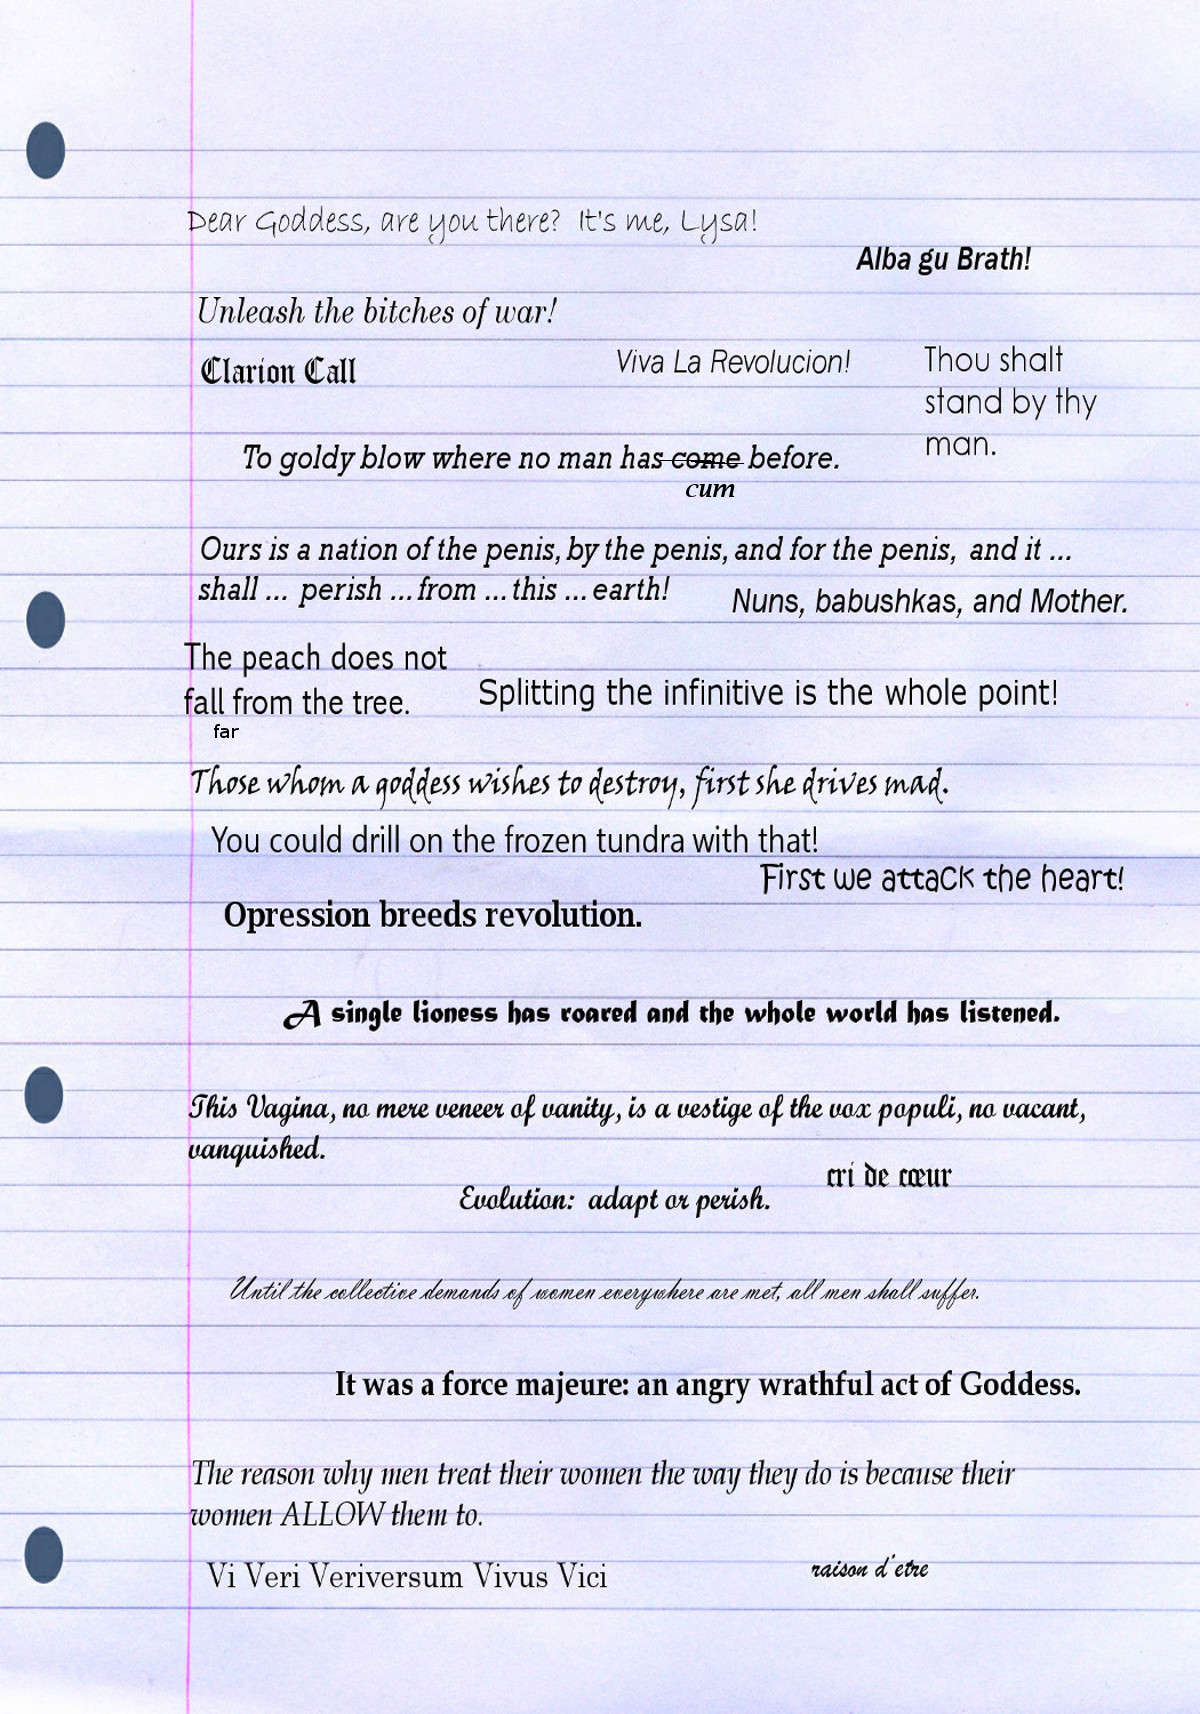 Dear Goddess, are you there? It's me, Lysa!
Alba gu Brath!
Unleash the bitches of war!
Clarion Call
Viva La Revolucion!
Thou shalt
stand by thy
man.
To goldy blow where no man has come before.
cum
Ours is a nation of the penis, by the penis, and for the penis, and it ...
shall ... perish ... from ... this ... earth!
Nuns, babushkas, and Mother.
The peach does not
fall from the tree.
far
Splitting the infinitive is the whole point!
Those whom a goddess wishes to destroy, first she drives mad.
You could drill on the frozen tundra with that!
First we attack the heart!
Opression breeds revolution.
A single lioness has roared and the whole world has listened.
This Vagina, no mere veneer of vanity, is a vestige of the vox populi, no vacant,
vanquished.
cri de cœur
Evolution: adapt or perish.
Until the collective demands of women everywhere are met, all men shall suffer.
It was a force majeure: an angry wrathful act of Goddess.
The reason why men treat their women the way they do is because their
women ALLOW them to.
Vi Veri Veriversum Vivus Vici
raison d'etre